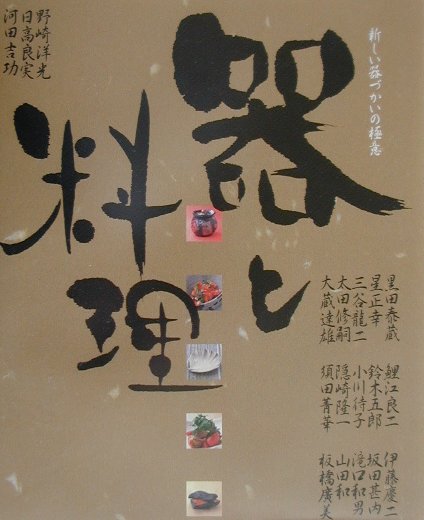 器と
料理
新しい器づかいの極意
野崎洋光
日高良実
河田吉功
黒田泰蔵
星正幸
三谷龍二
太田修嗣
大蔵達雄
鯉江良二
鈴木五郎
小川待子
隠崎隆一
須田菁華
伊藤慶二
坂田甚内
滝口和男
山田和
板橋廣美